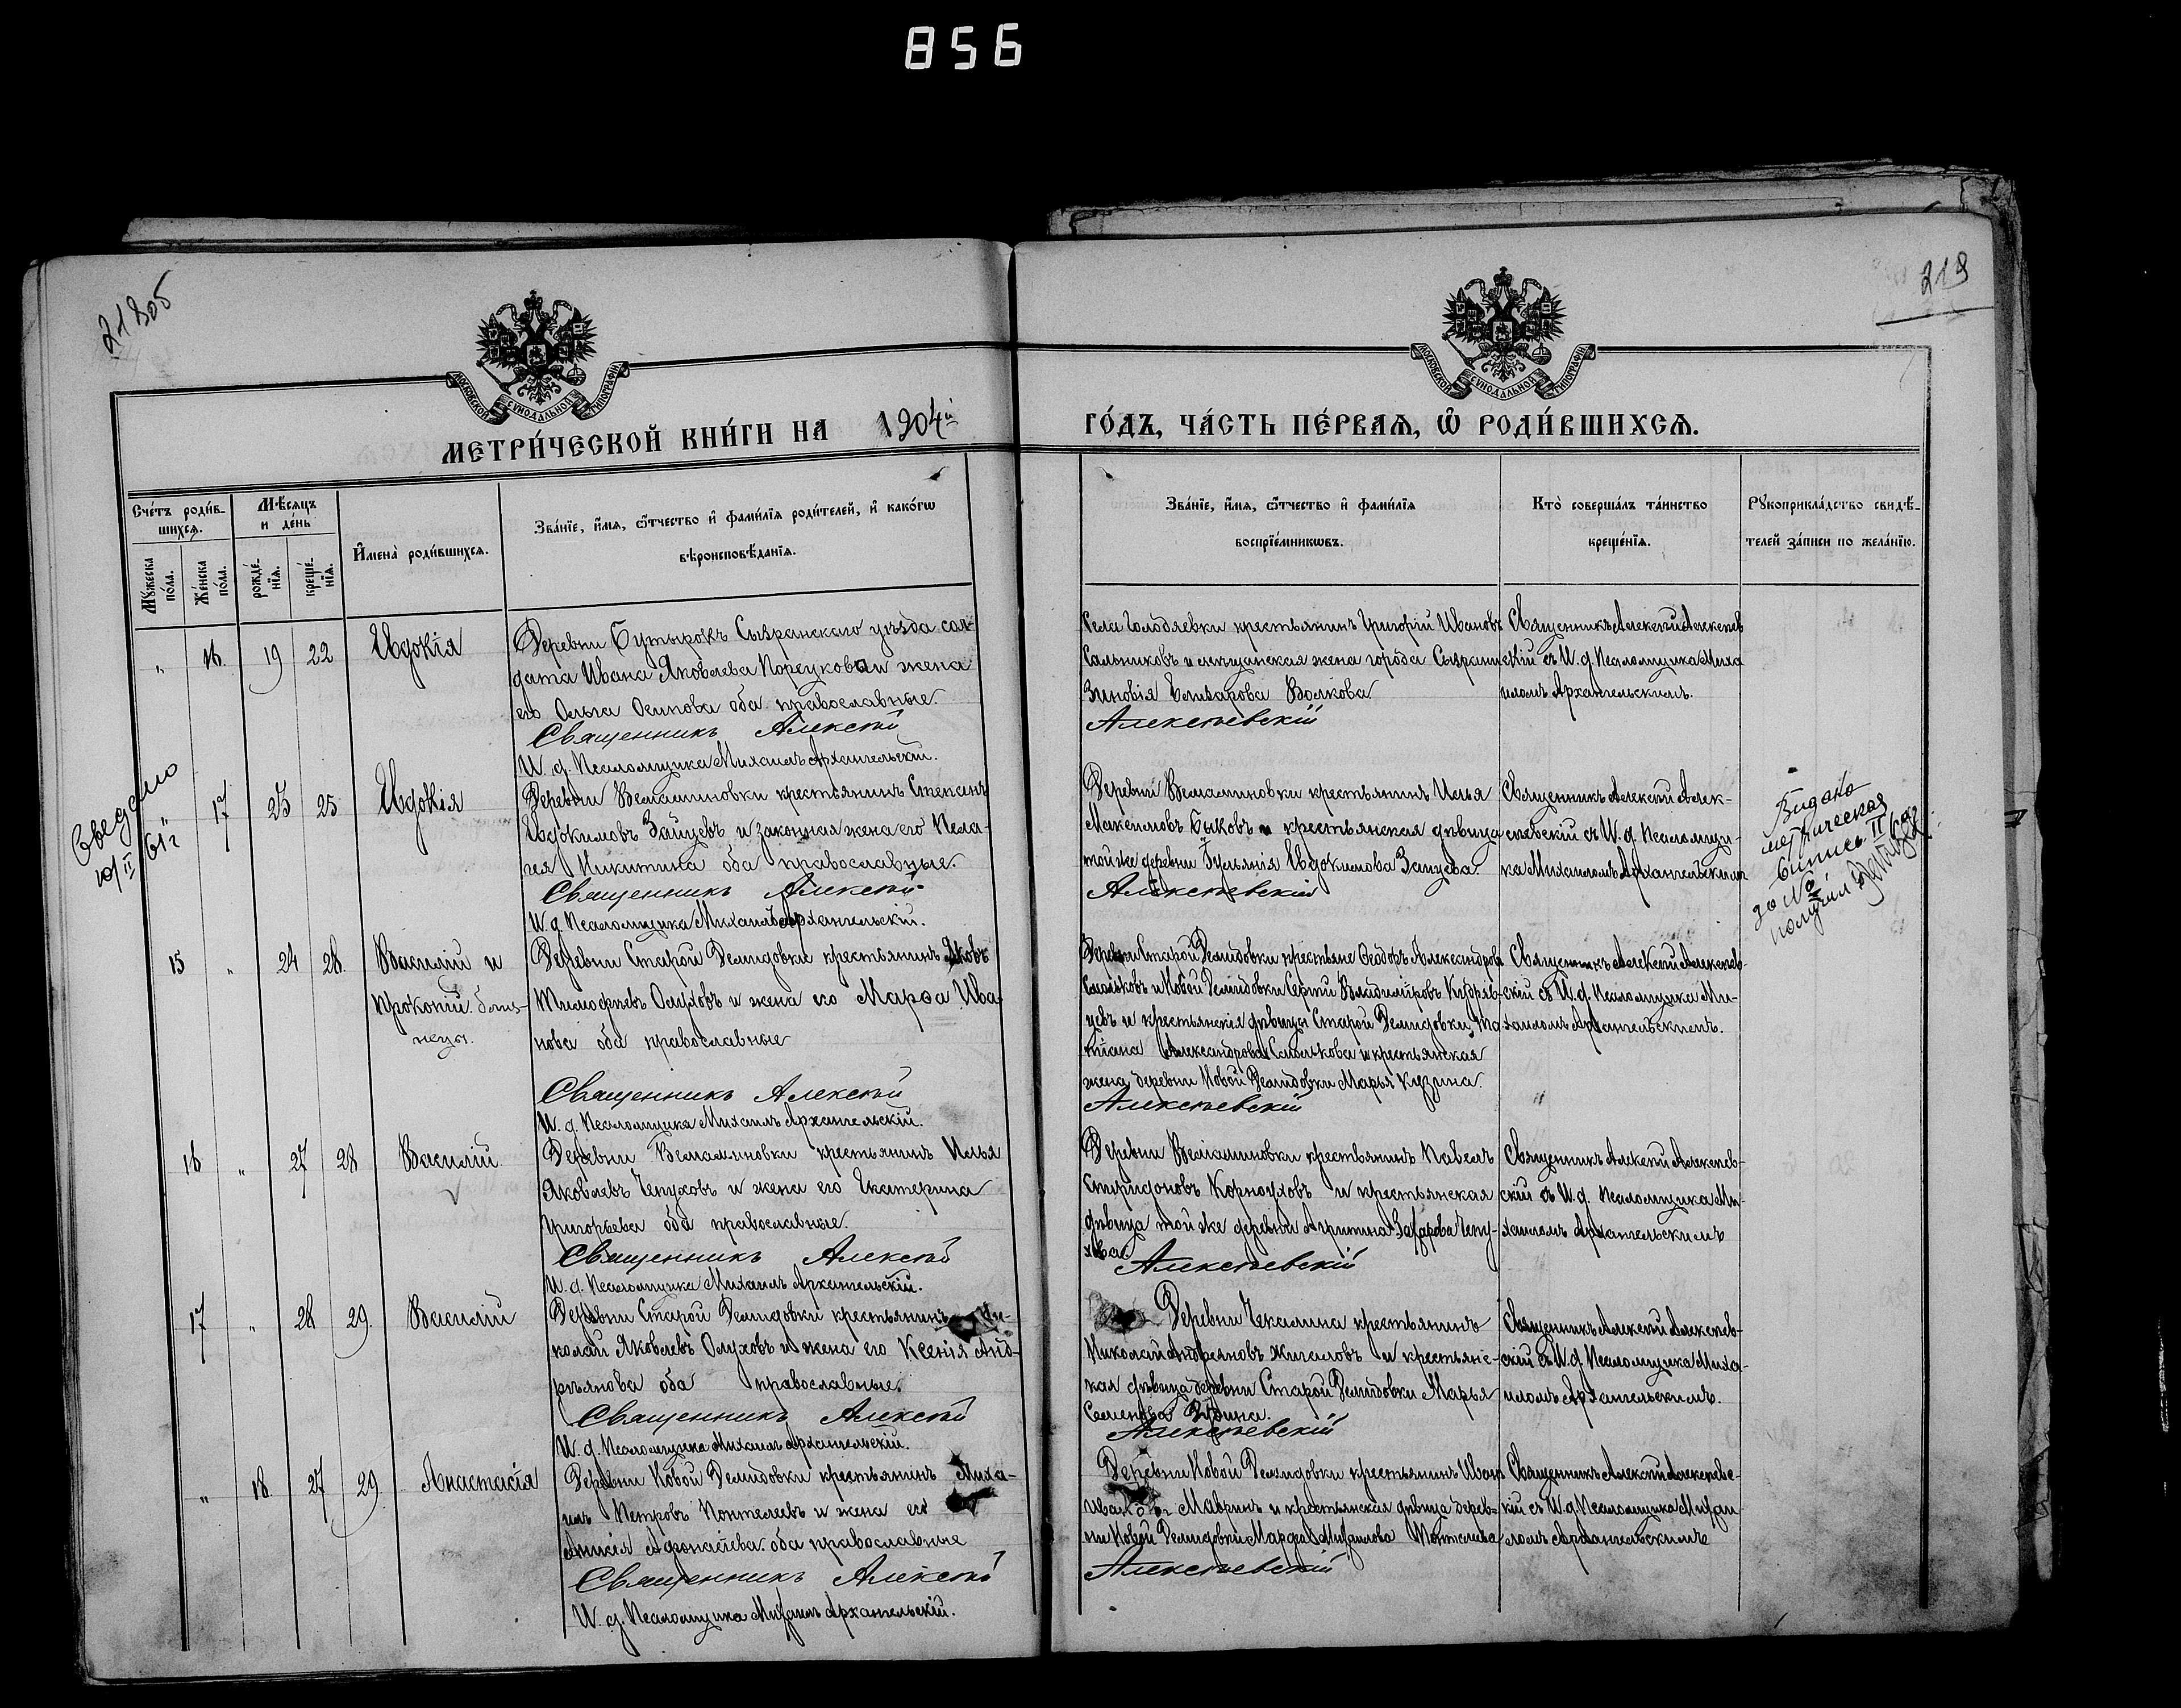 856
218об
219
МОСКОВСКОЙ СѴНОДАЛЬНОЙ ТИПОГРАФІИ
МОСКОВСКОЙ СѴНОДАЛЬНОЙ ТИПОГРАФІИ
МЕТРИ́ЧЕСКОЙ КНИ́ГИ НА 1904й
ГО́ДЪ, ЧА́СТЬ ПЕ́РВАѦ, Ѡ҆ РОДИ́ВШИХСѦ.
Сче́тъ роди́в-
шихсѧ.
Мꙋ́жеска
по́ла.
Же́нска
по́ла.
Мѣ́сѧцъ
и де́нь
рожде́-
нїѧ.
креще́-
нїѧ.
И҆мена̀ роди́вшихсѧ.
Зва́нїе, и҆́мѧ, ѻ҆́тчество и҆ фами́лїѧ роди́телей, и҆ како́гѡ
вѣроисповѣ́данїѧ.
Зва́нїе, и҆́мѧ, ѻ҆́тчество и҆ фами́лїѧ
воспрїе́мникѡвъ.
Кто̀ соверша́лъ та́инство
креще́нїѧ.
Рꙋкоприкла́дство свидѣ́-
телей за́писи по жела́нїю.
" 16. 19 22 Евдокія
Деревни Бутырокъ Сызранскаго уѣзда сол-
дата Ивана Яковлева жена
его Ольга Осипова оба православные.
Священникъ Алексѣй
И. д. Псаломщика Михаилъ Архангельскій.
Села Голодяевки крестьянинъ Григорій Ивановъ
Сальниковъ и мѣщанская жена города Сызрани
Зиновія Елизарова Волкова
Алексѣевскій
Священникъ Алексѣй Алексѣев-
скій съ И. д. Псаломщика Миха-
иломъ Архангельскимъ.
Сведено
10/II 61г
" 17 23 25 Евдокія
Деревни Веньаминовки крестьянинъ Степанъ
Евдокимовъ Зайцевъ и законная жена его Пела-
гея Никитина оба православные
Священникъ Алексѣй
И. д. Псаломщика Михаилъ Архангельскій.
Деревни Веньаминовки крестьянинъ Илья
Максимовъ Быковъ и крестьянская дѣвица
той же деревни Евдокимова Зайцева.
Алексѣевскій
Священникъ Алексѣй Алек-
сѣевскій съ И. д. Псаломщи-
ка Михаиломъ Архангельскимъ
Видано
метрическая
випись
за №
получил
15 " 24 28. Василій и
Прокопій близ-
нецы.
Деревни Старой Демидовки крестьянинъ Яковъ
Тимофѣевъ Олуховъ и жена его Марѳа Ива-
нова оба православные
Священникъ Алексѣй
И. д. Псаломщика Михаилъ Архангельскій.
Деревни Старой Демидовки крестьяне Ѳеодоръ Александровъ
Смольковъ и Новой Демидовки Сергѣй Владиміровъ Кудряв-
цевъ и крестьянскія дѣвицы Старой Демидовки Та-
тіана Александрова Смолькова и крестьянская
жена деревни Новой Демидовки Марья Кузина.
Алексѣевскій
Священникъ Алексѣй Алексѣев-
скій съ И. д. Псаломщика Ми-
хаиломъ Архангельскимъ.
16 " 27 28 Василій
Деревни Веньаминовки крестьянинъ Илья
Яковлевъ Чепуховъ и жена его Екатерина
Григорьева оба православные.
Священникъ Алексѣй
И. д. Псаломщика Михаилъ Архангельскій.
Деревни Веньаминовки крестьянинъ Павелъ
Спиридоновъ Корноуховъ и крестьянская
дѣвица той же деревни Агрипина Захарова Чепу-
хова.
Алексѣевскій
Священникъ Алексѣй Алексѣев-
скій съ И. д. Псаломщика Ми-
хаиломъ Архангельскимъ
17 " 28 29. Василій
Деревни Старой Демидовки крестьянинъ Ни-
колай Яковлевъ Олуховъ и жена его Ксенія Анд-
реянова оба православные.
Священникъ Алексѣй
И. д. Псаломщика Михаилъ Архангельскій.
Деревни Чекалина крестьянинъ
Николай Андреяновъ Жигаловъ и крестьянс-
кая дѣвица деревни Старой Демидовки Марья
Семенова
Алексѣевскій
Священникъ Алексѣй Алексѣев-
скій съ И. д. Псаломщика Миха-
иломъ Архангельскимъ.
" 18 27 29 Анастасія
Деревни Новой Демидовки крестьянинъ Миха-
илъ Петровъ Понтелеевъ и жена его
Анисія Афонасіева оба православные
Священникъ Алексѣй
И. д. Псаломщика Михаилъ Архангельскій.
Деревни Новой Демидовки крестьянинъ Иванъ
Ивановъ Мавринъ и крестьянская дѣвица дерев-
ни Новой Демидовки Марѳа Михаилова Понтелеева
Алексѣевскій
Священникъ Алексѣй Алексѣевс-
кій съ И. д. Псаломщика Михаи-
ломъ Архангельскимъ